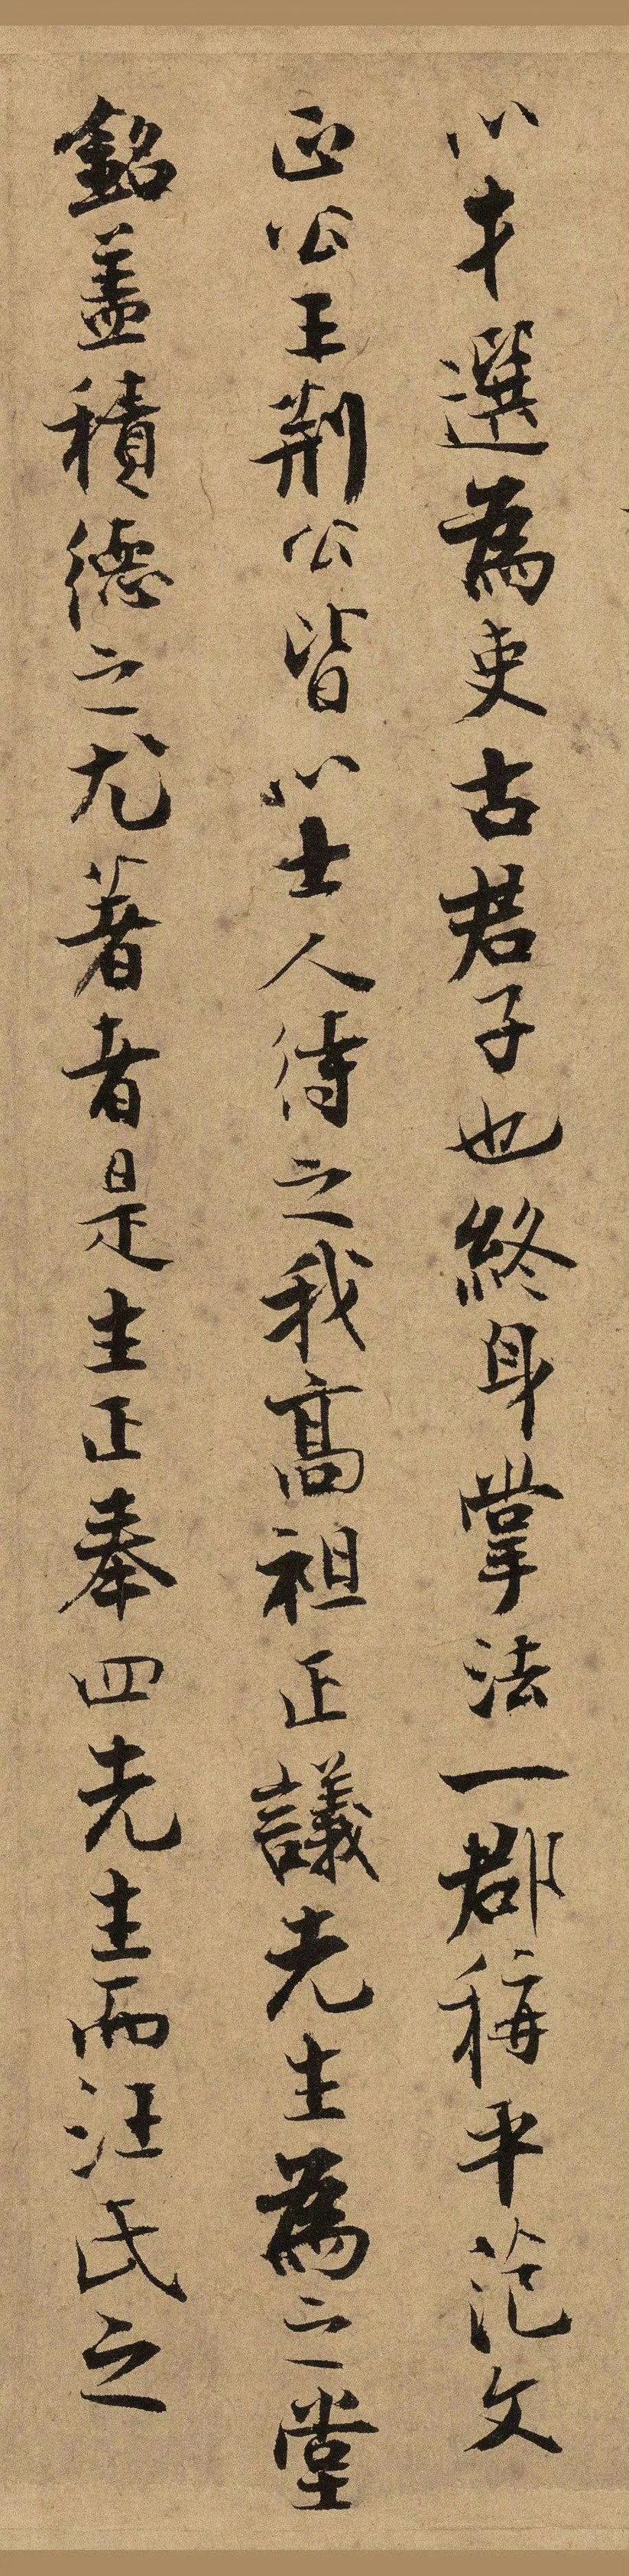 以才選為吏古君子也終身掌法一郡稱平范文
正公王荆公皆以士人待之我高祖正議先生為之堂
銘蓋積德之尤著者是生正奉四先生而汪氏之